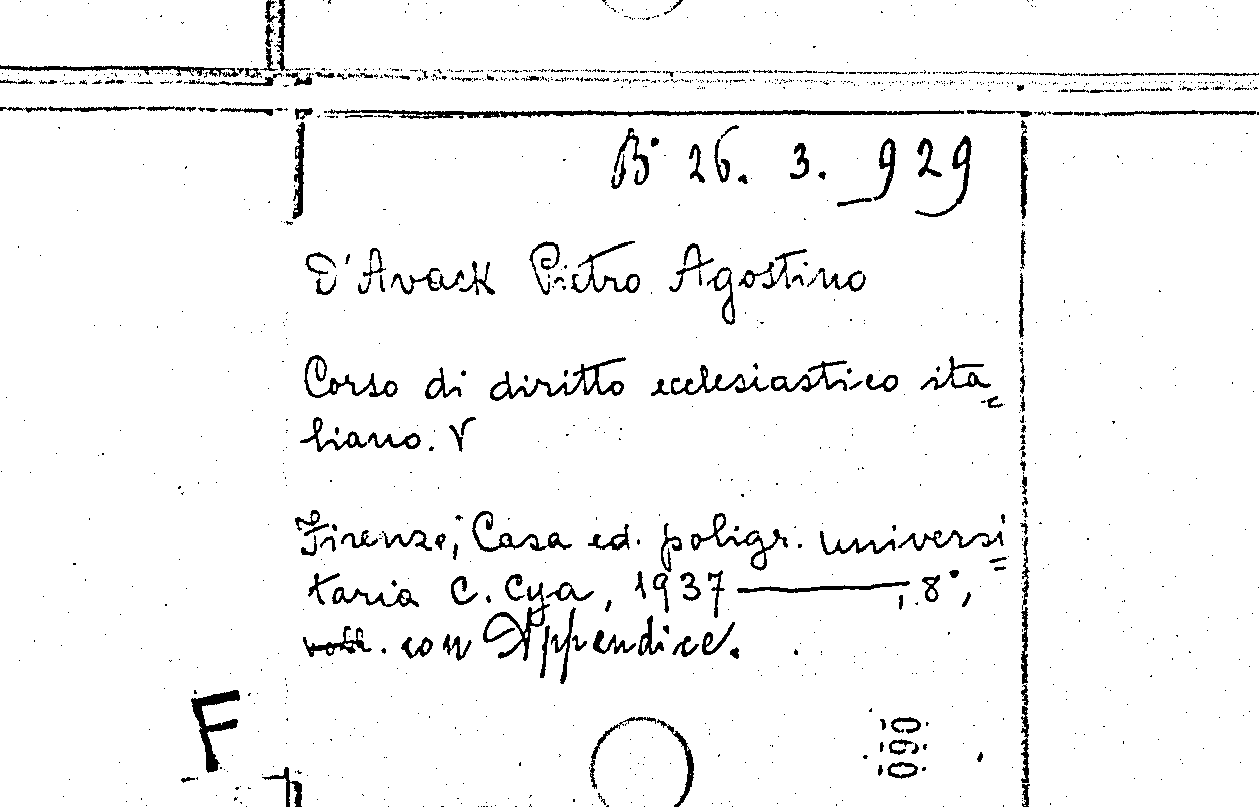 B° 26. 3. 929
D'Avack Pietro Agostino
Corso di diritto ecclesiastico ita=
liano. V
Firenze, Casa ed. poligr. universi=
taria C. Cya, 1937 ———, 8°,
voll. con Appendice.
F
090